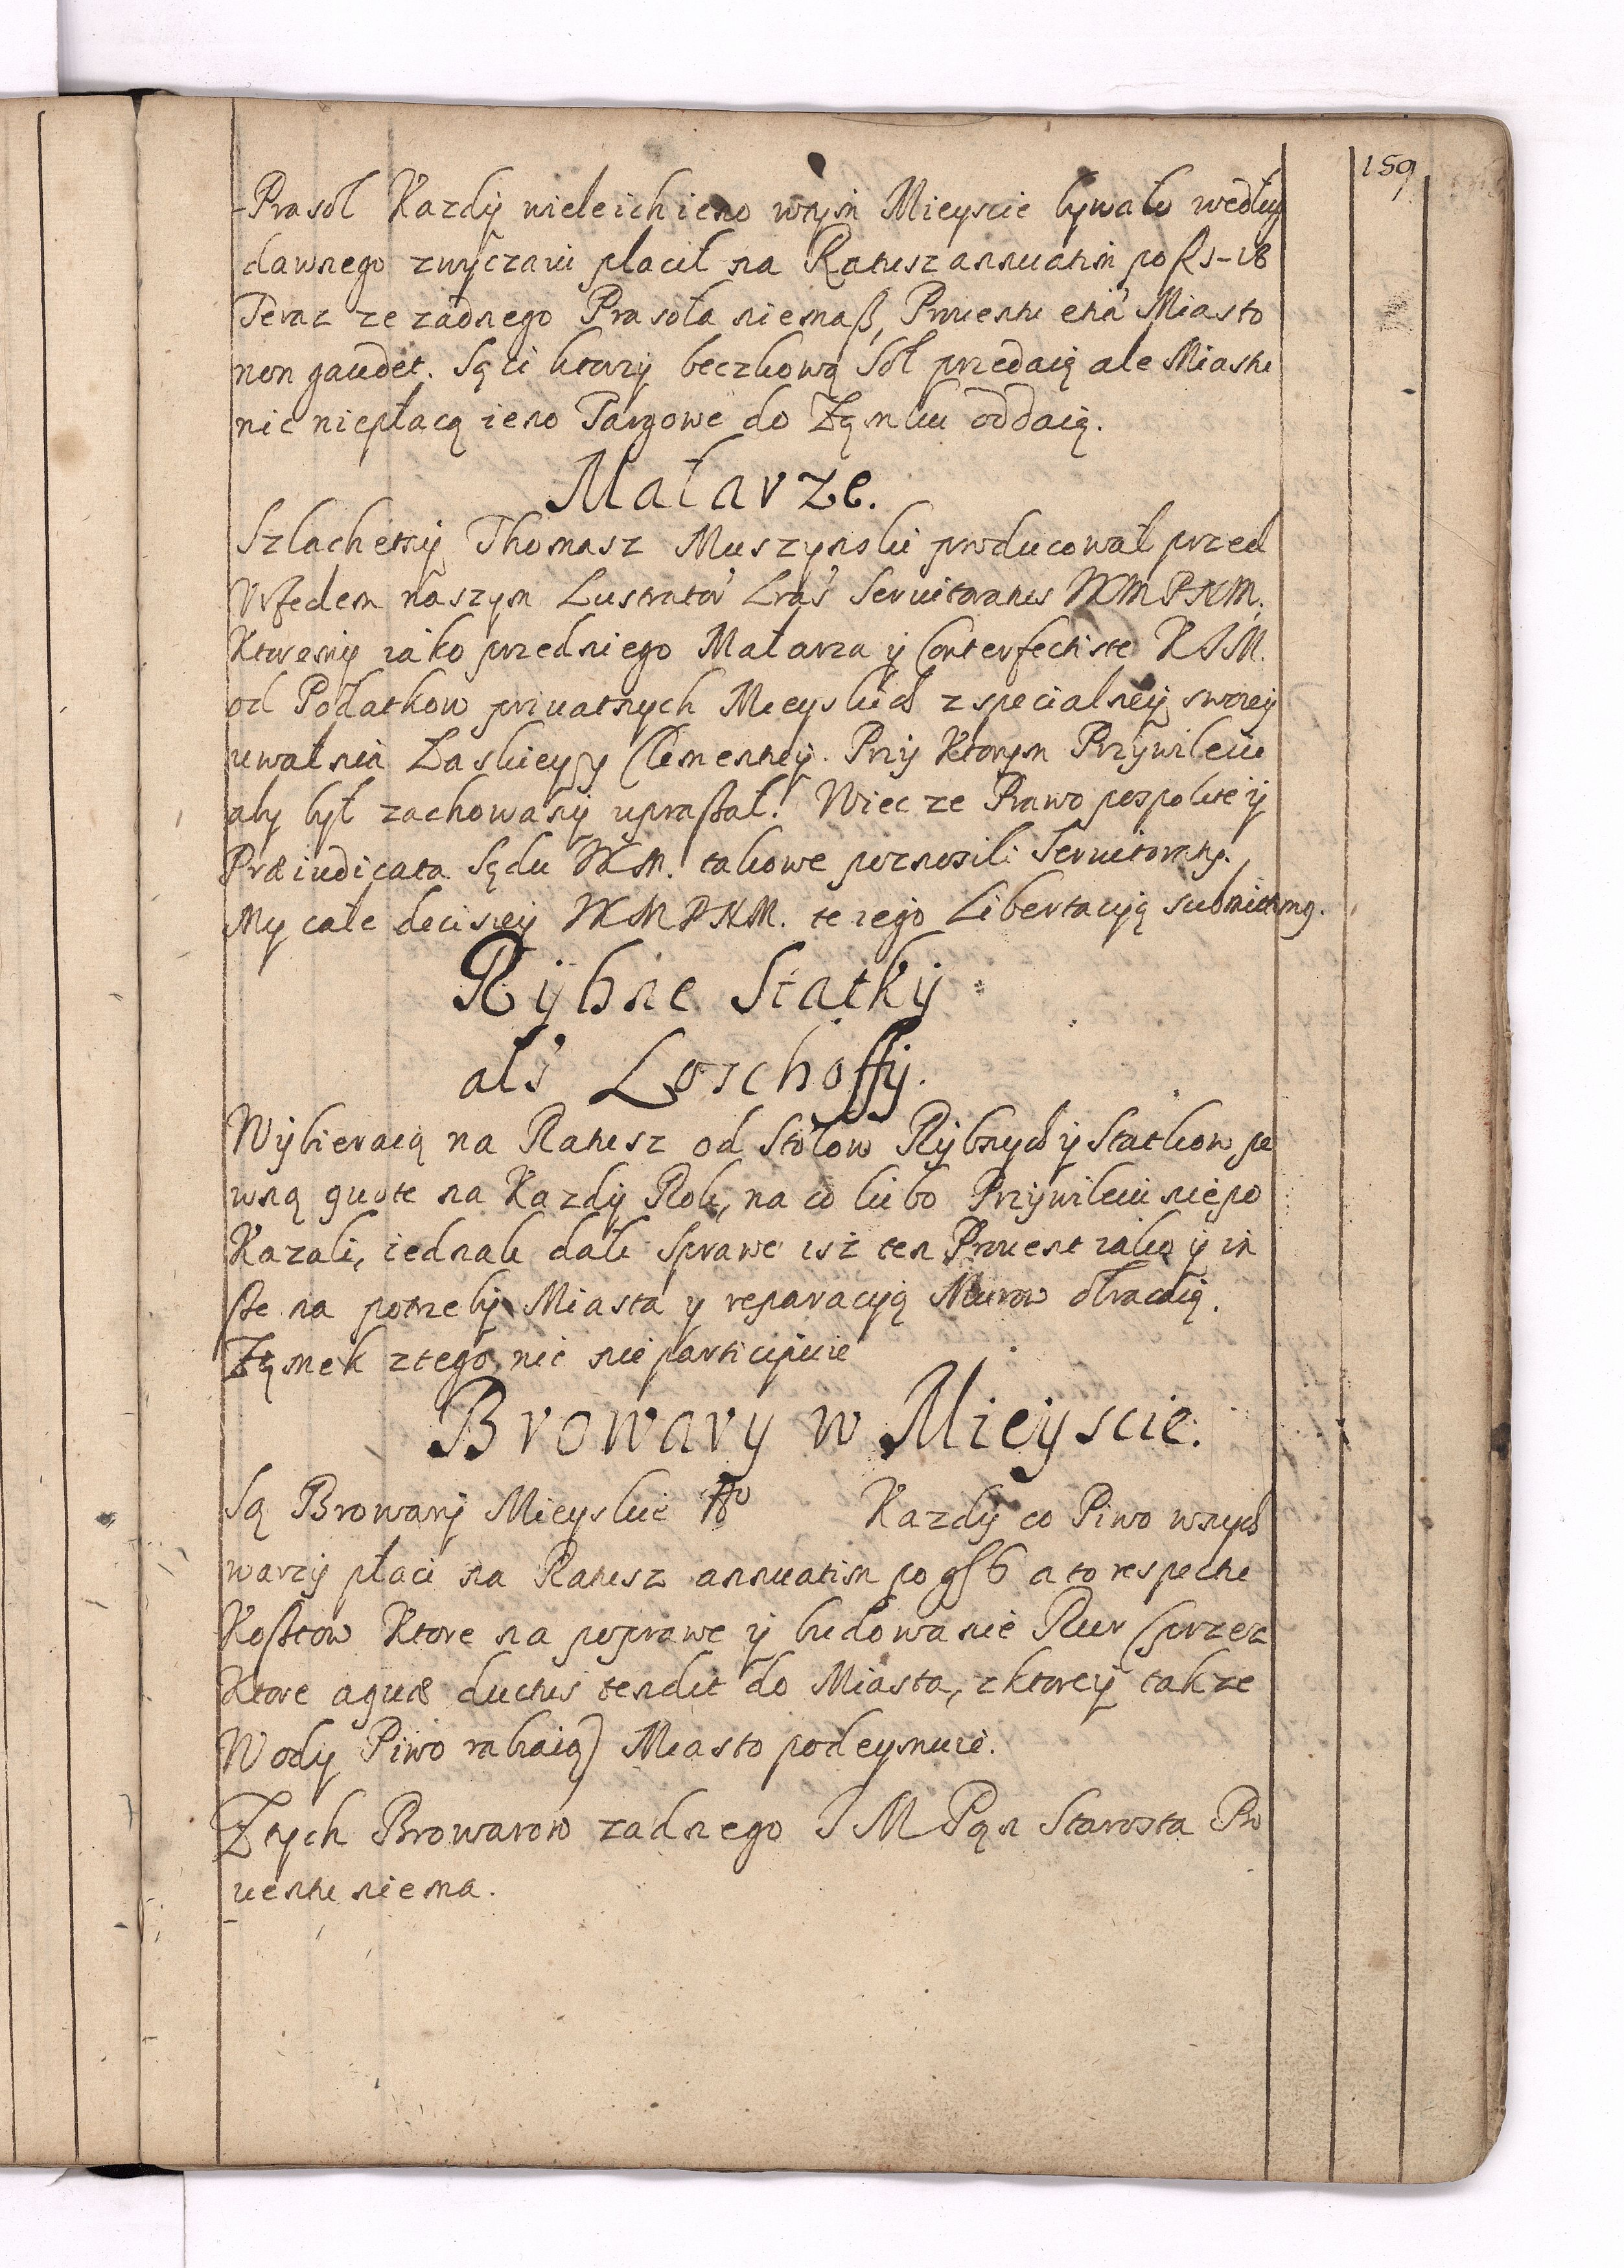 159
Prasoł Kazdÿ wieleich ieno wtym Mieyscie bywało według
dawnego zwyczaiu płacił na Ratusz annuatim po fl 1-18
Teraz ze zadnego Prasoła niemaß, Prouentu etiã Miasto
non gaudet. Są ci ktorzy beczkową Sol przedaią ale Miastu
nic niepłacą ieno Targowe do Zamku oddaią.
Malarze.
Szlachetny Thomasz Muszynski producował przed
Vrzedem naszym Lustrator Lras Seruitoratus WKMPNM.
Ktoremy iako przedniego Malarza ÿ Conterfectiste KJM.
od Podatkow priuatnych Mieyskich z specialney sworey
uwalnia Łaskiey y Clementiey. Prÿ Ktorym Przywileiu
aby był zachowanÿ upraßał. Wiec ze Prawo pospolite ÿ
Præiudicata Sądu WKM. takowe poznosili Seruitoraty.
My cale decisiey WKMPNM. te iego Libertacyią submittimg.
Rÿbne Statkÿ
als Loschoffÿ.
Wÿbieraią na Ratusz od Stołow Rÿbnych ÿ Statkow pe
wną quote na Kazdÿ Rok, na co lubo Przÿwileiu niepo
Kazali, iednak dali Sprawe isz ten Prouent iako ÿ in
ße na potrzebÿ Miasta y reparacyią Murow obracaią.
Zamek ztego nic nie participuie
Browary w Mieÿscie.
Są Browarÿ Mieyskie No Kazdÿ co Piwo wnych
warzÿ płaci na Ratusz annuatim po gł 6 a to respectu
Koßtow Ktore na poprawe ÿ budowanie Rur (przez
Ktore aquæ ductus tendit do Miasta, z ktoreÿ takze
Wody Piwo rabaią) Miasto podeymuie.
Ztych Browarow zadnego JM Pan Starosta Pro
uentu niema.